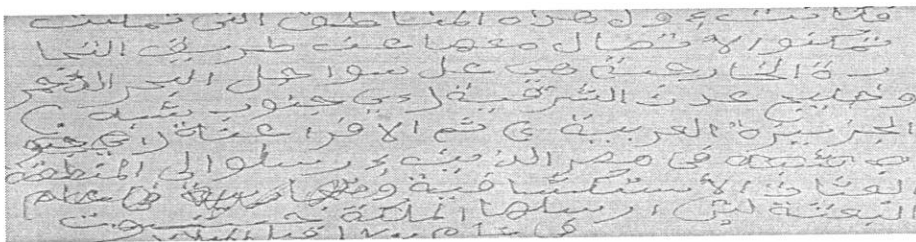 فكانت أول هذه المناطق التي تمكنت
تمكنوا الاتصال معها عن طريق التجا
رة الخارجية هي على سواحل البحر الاحمر
وخليج عدن الشرقية لدى جنوب شبه
الجزيرة العربية ثم الافراعنة
في مصر الذين ارسلوا الى المنطقة
لبعثات الأستكشافية في عام
البعثة التي ارسلها الملكة حتشبسوت
في عام قبل الميلاد